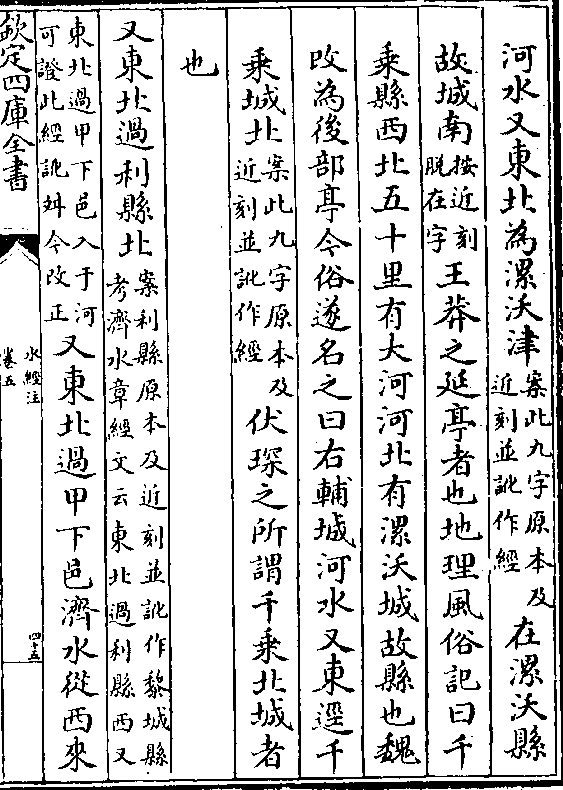 河水又東北為漯沃津案此九字原本及近刻並訛作經在漯沃縣
故城南按近刻脱在字王莽之延亭者也地理風俗記曰千
乘縣西北五十里有大河河北有漯沃城故縣也魏
改為後部亭今俗遂名之曰右輔城河水又東逕千
乘城北案此九字原本及近刻並訛作經伏琛之所謂千乘北城者
也
又東北過利縣北案利縣原本及近刻並訛作黎城縣考濟水章經文云東北過利縣西又
東北過甲下邑入于河可證此經訛舛今改正又東北過甲下邑濟水從西來
欽定四庫全書
水經注
卷五
四十五